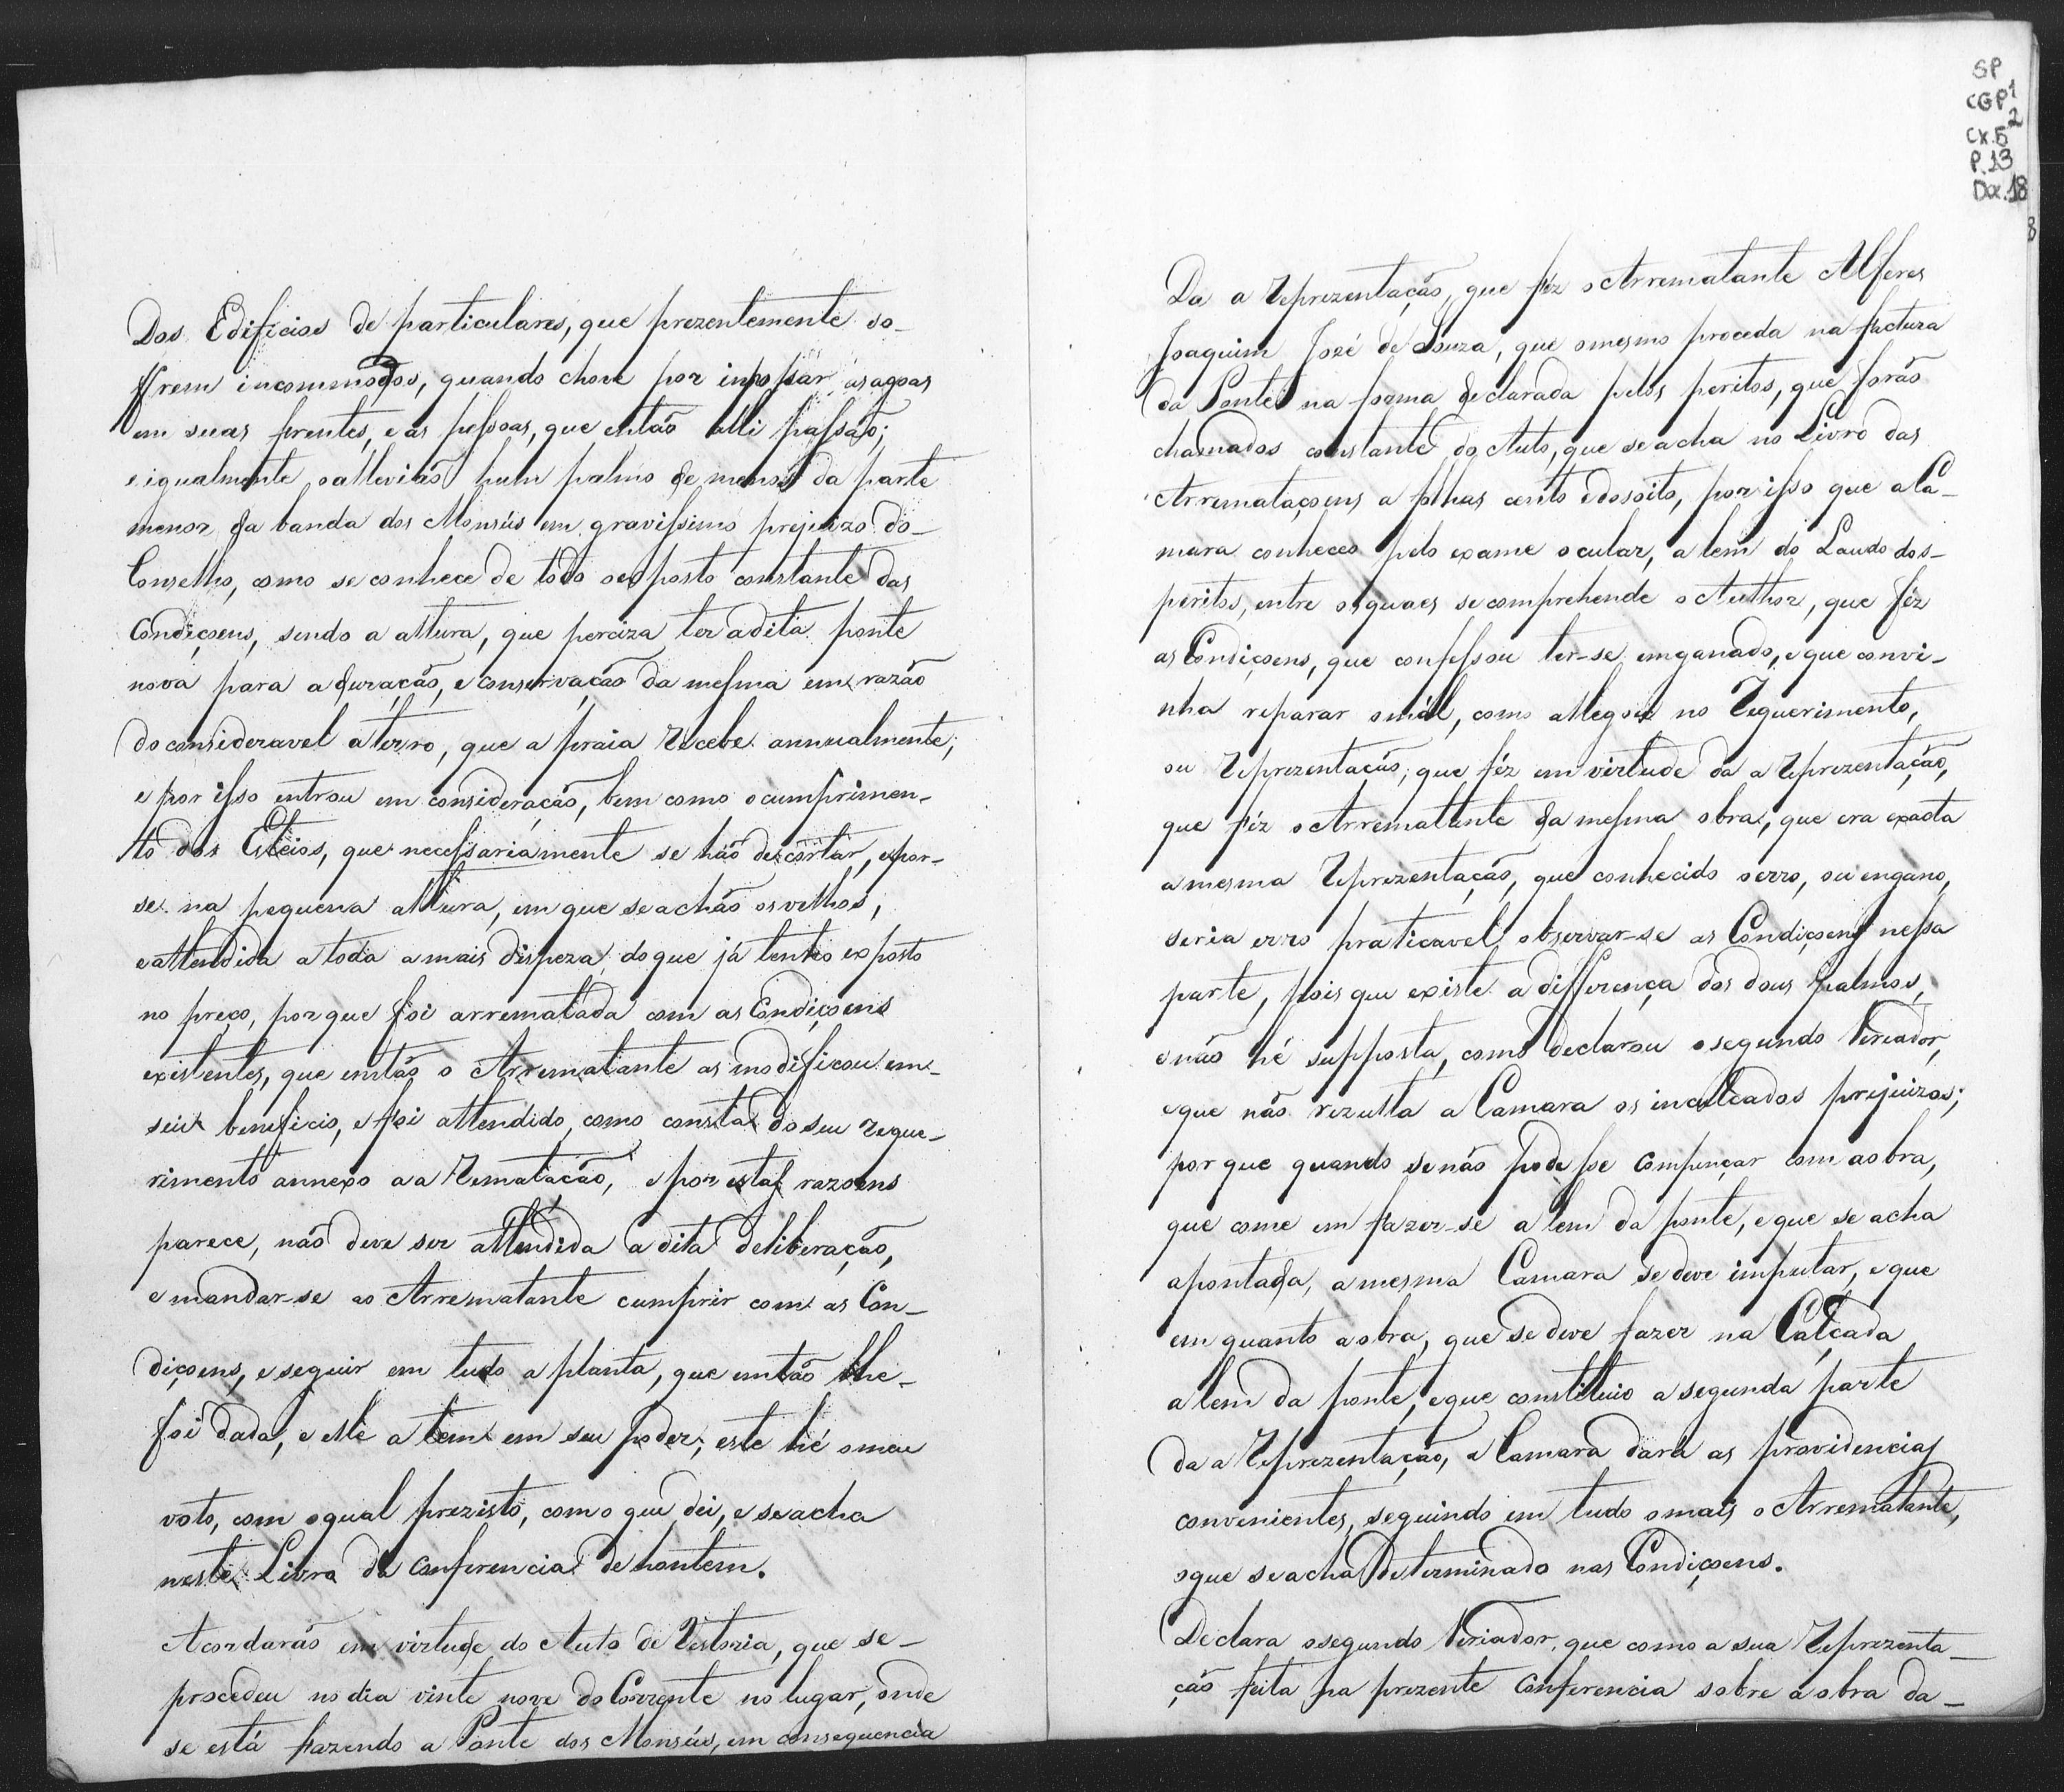 Dos Edificios de particulares, que prezentemente so-
ffrem incommodos, quando chove por impossar as agoas
em suas frentes, e as pessoas, que então alli passão;
e igualmente o allevião hum palmo de menos da parte
menor da banda dos Monsús em gravissimo prejuizo do-
Conselho, como se conhece de todo o exposto constante das
Condiçoens, sendo a altura, que perciza ter a dita ponte
nova para a duração, e conservação da mesma em razão
do consideravel aterro, que a praia recebe annualmente,
e por isso entrou em consideração, bem como o cumprimen-
to dos Esteios, que necessariamente se hão de cortar, e por-
se na pequena altura, em que se achão os velhos,
e attendida a toda a mais dispeza do que já tenho exposto
no preço, porque foi arrematada com as Condiçoens
existentes, que então o Arrematante as modificou em-
seu beneficio, e foi attendido, como consta do seu reque-
rimento annexo a a Rematação, e por estas razoens
parece, não deve ser attendida a dita deliberação,
e mandar-se ao Arrematante cumprir com as Con-
diçoens, e seguir em tudo a planta, que então lhe-
foi dada, e elle a tem em seu poder; este hé o meu
voto, com o qual prezisto, como o que dei, e se acha
neste Livro da Conferencia de hontem.
Acordarão em virtude do Auto de Vestoria, que se-
procedeu no dia vinte nove do Corrente no lugar, onde
se está fazendo a Ponte dos Monsús, em consequencia
SP
CGP1
CX.52
P.13
Doc.18
8
Da a reprezentação, que fêz o Arrematante Alferes
Joaquim José de Souza, que o mesmo proceda na factura
da Ponte na forma declarada pelos peritos, que forão
chamados constante do Auto, que se acha no Livro das
Arremataçoens a folhas cento e dosoito, por isso que a Ca-
mara conheceo pelo exame ocular, a lem do Laudo dos-
peritos, entre os quaes se comprehende o Author, que fêz
as Condiçoens, que confessou ter-se emganado, e que convi-
nha reparar o mál, como allegou no Requerimento,
ou Reprezentação, que fêz em virtude da a Reprezentação,
que fêz o Arrematante da mesma obra, que era exacta
a mesma Reprezentação, que conhecido o erro, ou engano,
seria erro praticavel observar-se as Condiçoens nessa
parte, pois que existe a differença dos dous palmos,
e não hé supposta, como declarou o segundo Veriador,
e que não rezulta a Camara os inculcados prejuizos;
por que quando se não podesse Compençar com a obra,
que come em fazer-se a lem da ponte, e que se acha
apontada, a mesma Camara se deve imputar, e que
em quanto a obra, que se deve fazer na Calçada
a lem da ponte, e que constituio a segunda parte
da a Reprezentação, a Camara dará as providencias
convenientes, seguindo em tudo o mais o Arrematante,
o que se acha Determinado nas Condiçoens.
Declara o segundo Veriador, que como a sua Reprezenta-
ção feita na prezente Conferencia sobre a obra da-